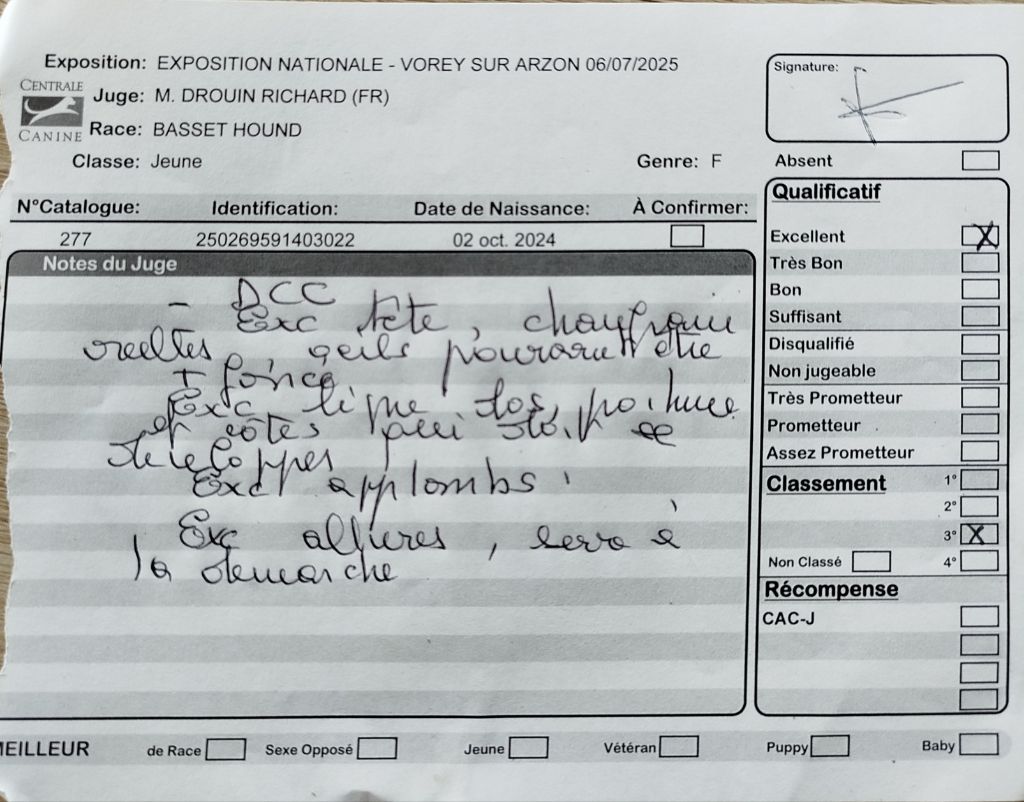 Exposition: EXPOSITION NATIONALE - VOREY SUR ARZON 06/07/2025
CENTRALE CANINE
Juge: M. DROUIN RICHARD (FR)
Race: BASSET HOUND
Classe: Jeune Genre: F
N°Catalogue: Identification: Date de Naissance: À Confirmer:
277 250269591403022 02 oct. 2024
Notes du Juge
- DCC
Exc tête, chanfrein
oreilles, oeils pourraient être
+ foncé
Exc ligne dos, poitrine
et côtes qui doit se
developper
Exct applombs
Exc allures, serre à
la demarche
Signature:
Absent
Qualificatif
Excellent X
Très Bon
Bon
Suffisant
Disqualifié
Non jugeable
Très Prometteur
Prometteur
Assez Prometteur
Classement 1°
2°
3° X
Non Classé 4°
Récompense
CAC-J
MEILLEUR de Race Sexe Opposé Jeune Vétéran Puppy Baby